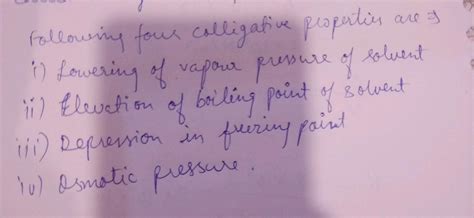 Following four colligative properties are
i) Lowering of vapour pressure of solvent
ii) Elevation of boiling point of solvent
iii) Depression in freezing point
iv) Osmotic pressure.